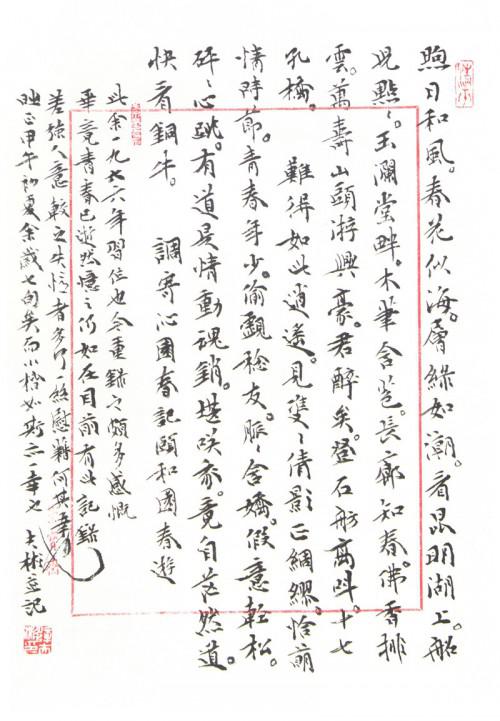 煦日和風。春花似海。層綠如潮。看昆明湖上。船
兒點〻。玉瀾堂畔。木筆含苞。長廊知春。佛香排
雲。萬壽山頭游興豪。君醉矣。登石舫高吟。十七
孔橋。 難得如此逍遙。見雙〻倩影正綢繆。恰萌
情時節。青春年少。偷覷稔友。脈〻含嬌。假意輕松。
砰〻心跳。有道是情動魂銷。堪咲余。竟自茫然道。
快看銅牛。 調寄沁園春記頤和園春遊
此余一九七六年習作也今重録之頗多感慨
畢竟青春已逝然憶之仍如在目前有此記録
差強人意較之失憶者多了些慰藉何其幸
甲午初夏余歲七旬矣而小楷如斯亦一幸也 士彬並記